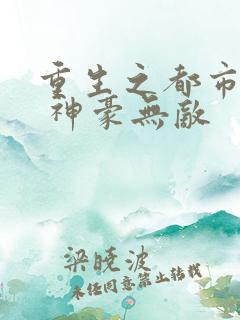 重生之都市
神豪無敵
梁曉波
未经同意禁止转载